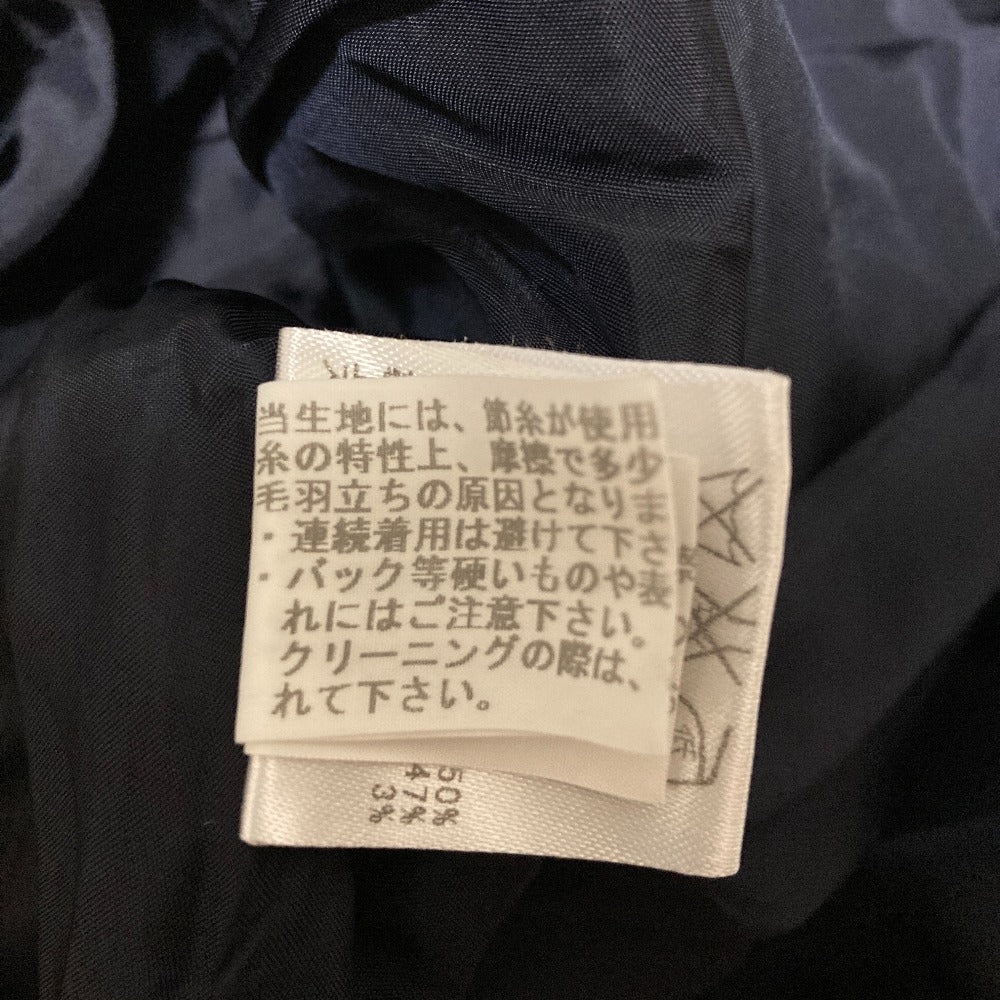 当生地には、節糸が使用
糸の特性上、摩擦で多少
毛羽立ちの原因となりま
・連続着用は避けて下さ
・バック等硬いものや表
れにはご注意下さい。
クリーニングの際は、
れて下さい。
50%
47%
3%